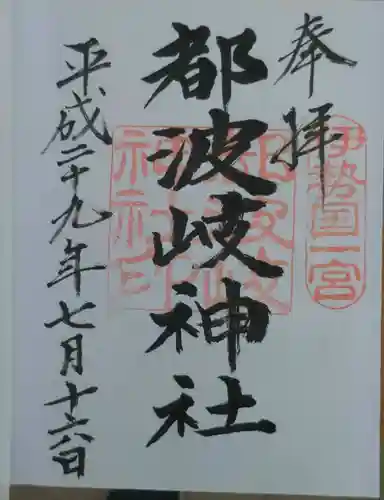 奉拝
伊勢国一宮
都波岐神社
都波岐神社印
平成二十九年七月十六日